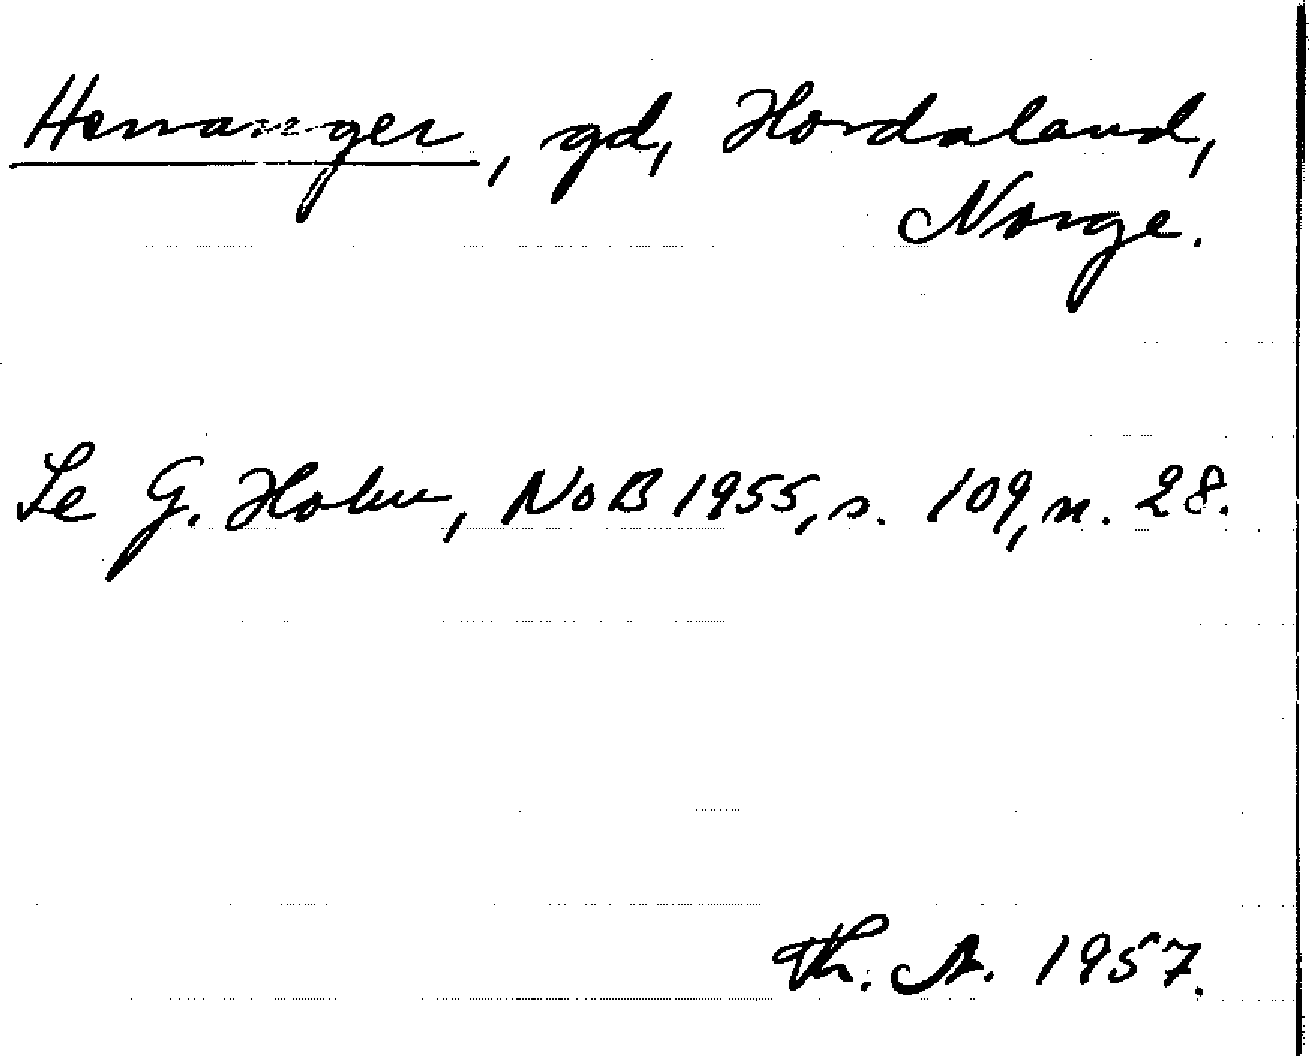 Herranger, gd, Hordaland,
Norge.
Se G. Holm, NoB 1955, s. 109, n. 28.
Th. A. 1957.